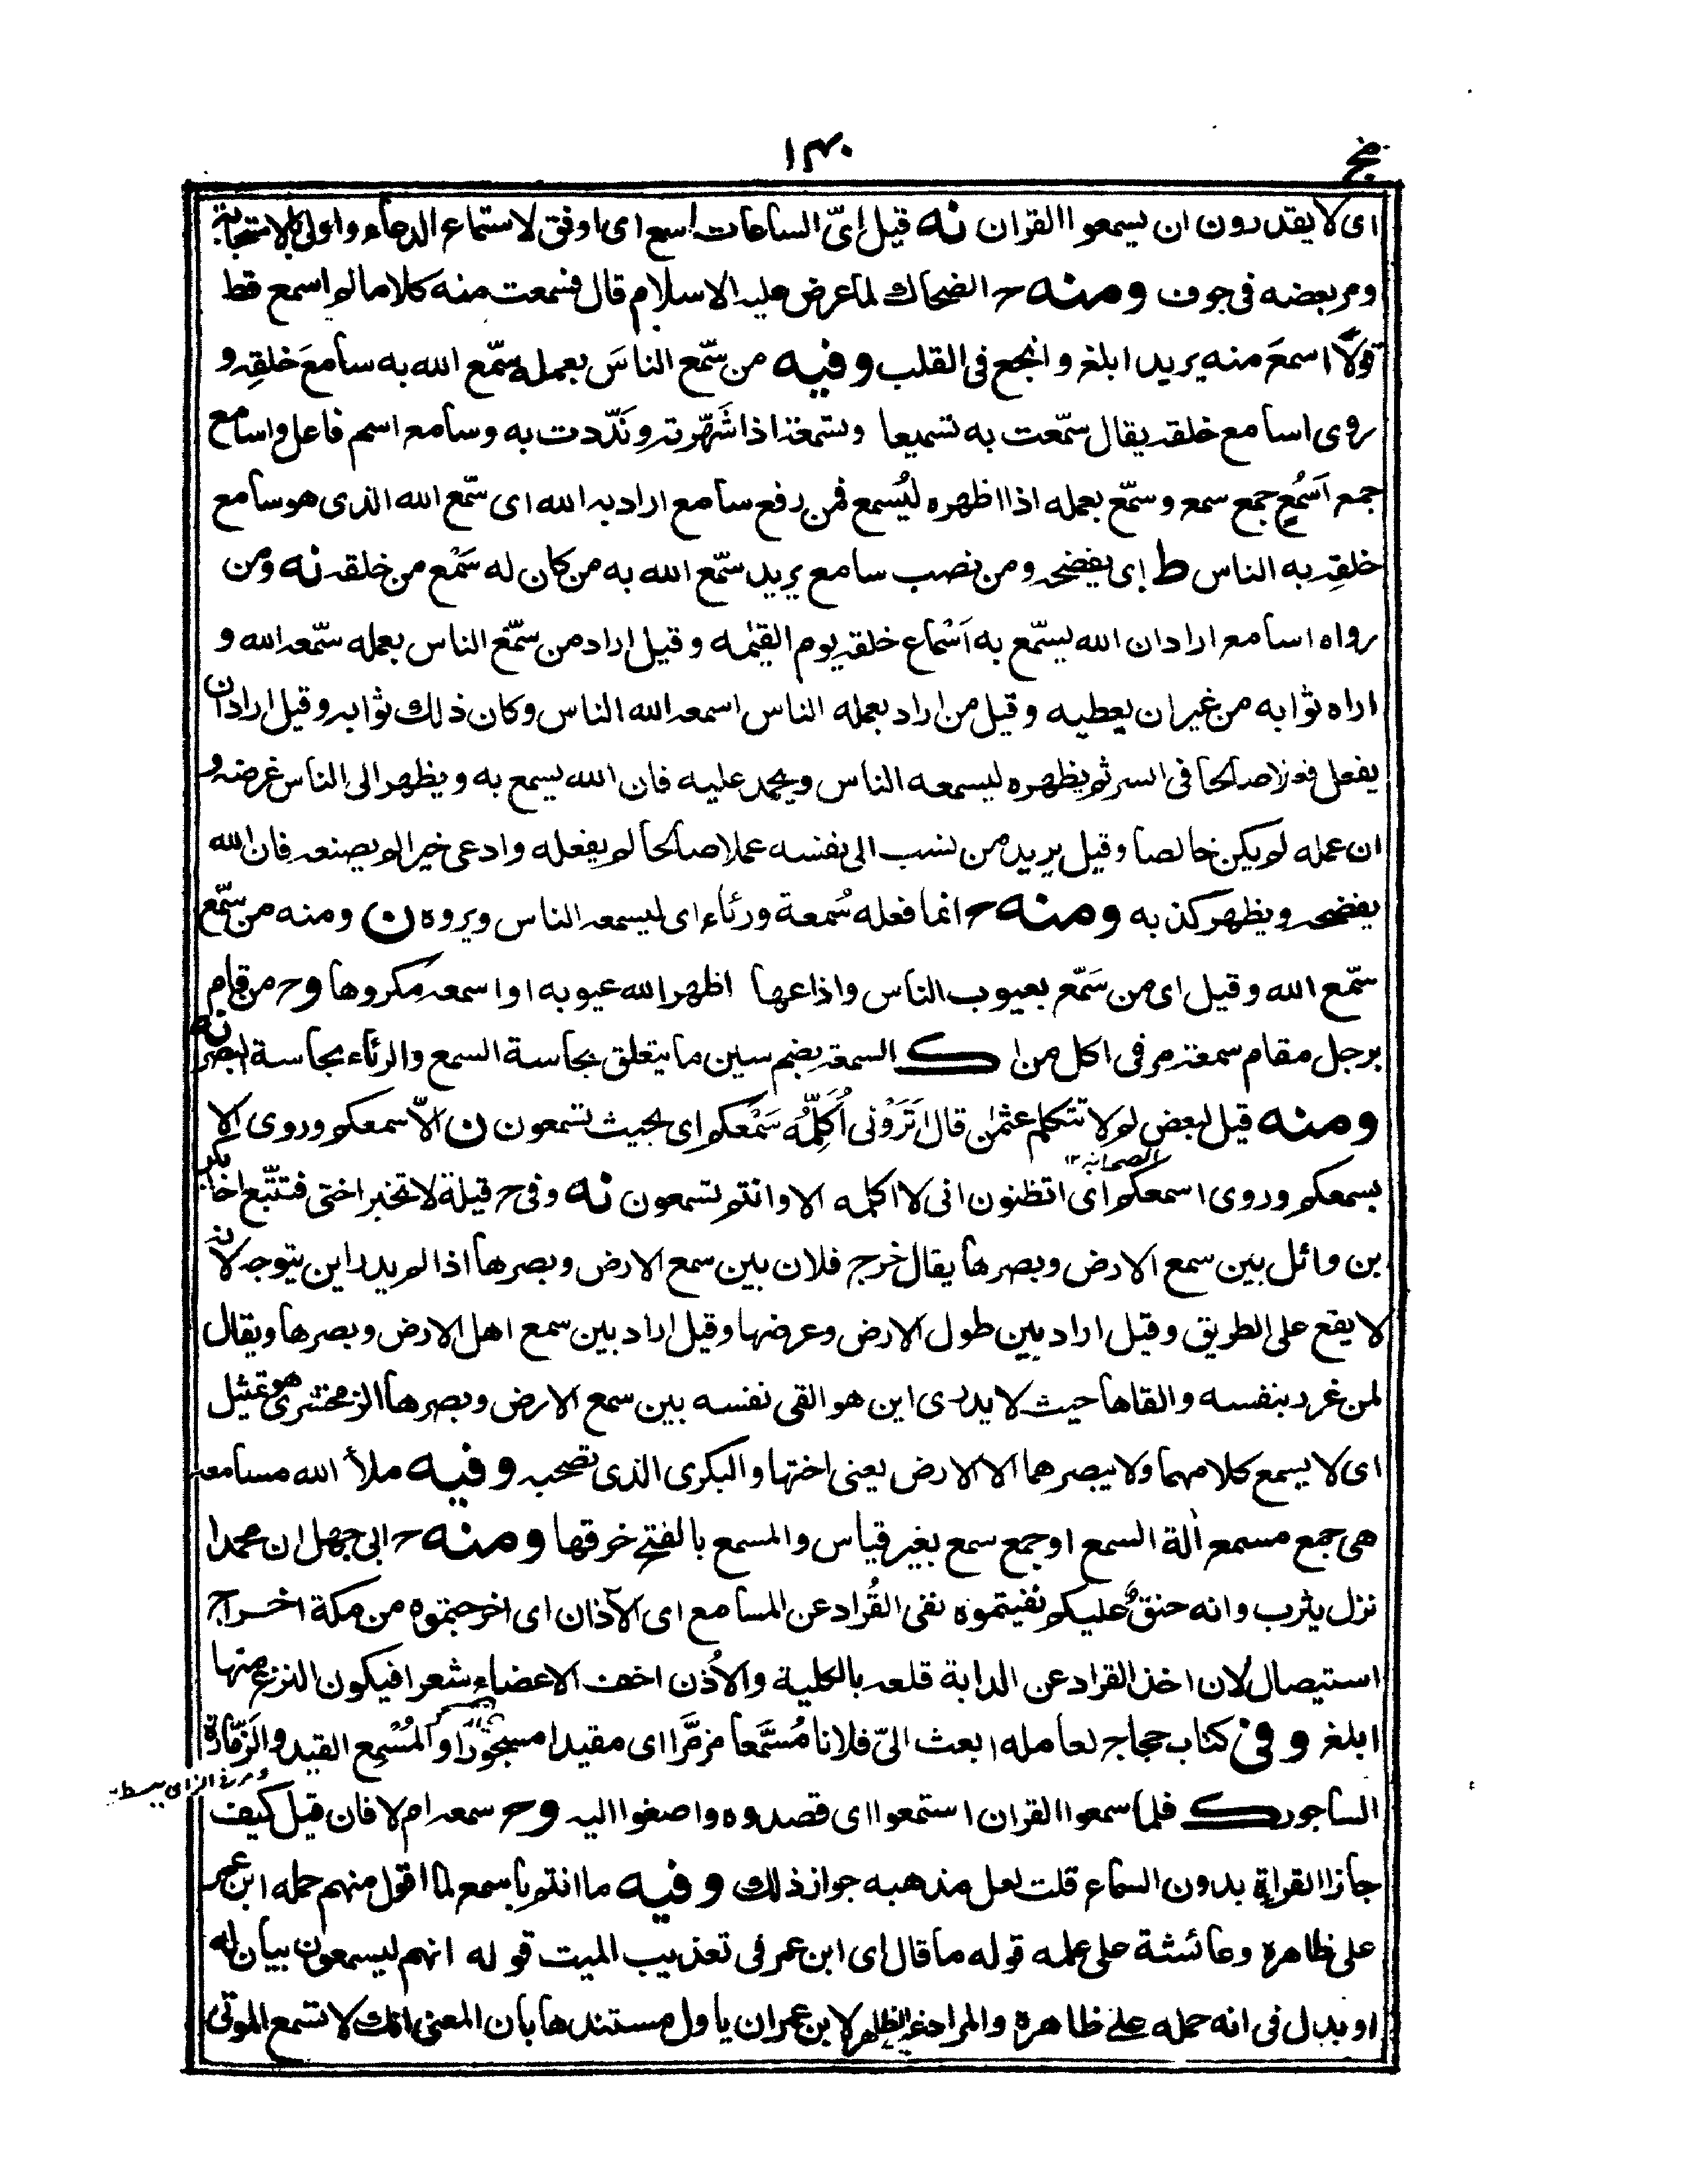 مج
١٣٠
اى لا يقدرون ان يسمعوا القران نه قيل اىّ الساعات اسمع اى اوفق لاستماع الدعاء واولى بالاستجابة
ومر بعضه فى جوف ومنه ح الضحاك لما عرض عليه الاسلام قال فسمعت منه كلاما لم اسمع قط
قولًا اسمعَ منه يريد ابلغ وانجع فى القلب وفيه من سمّع الناسَ بعمله سمّع الله به سامعَ خلقِه و
روى اسامع خلقه يقال سمّعت به تسميعا وتسمعة اذا شَهّرته ونَدّدت به وسامع اسم فاعل واسامع
جمع اَسمُع جمع سمع وسمّع بعمله اذا اظهره ليُسمع فمن رفع سامع اراد به الله اى سمّع الله الذى هو سامع
خلقِه به الناس ط اى يفضحه ومن نصب سامع يريد سمّع الله به من كان له سَمْع من خلقه نه ومن
رواه اسامع اراد ان الله يسمّع به اَسْماع خلقه يوم القيٰمه وقيل اراد من سمّع الناس بعمله سمّعه الله و
اراه ثوابه من غير ان يعطيه وقيل من اراد بعمله الناس اسمعه الله الناس وكان ذلك ثوابه وقيل اراد ان
يفعل فعلا صالحا فى السر ثم يظهره ليسمعه الناس ويحمد عليه فان الله يسمع به ويظهر الى الناس غرضه و
ان عمله لم يكن خالصا وقيل يريد من نسب الى نفسه عملا صالحا لم يفعله وادعى خيرا لم يصنعه فان الله
يفضحه ويظهر كذبه ومنه ح انما فعله سُمعة ورئاء اى ليسمعه الناس ويروه ن ومنه من سمّع
سمّع الله وقيل اى من سَمّع بعيوب الناس واذاعها اظهر الله عيوبه او اسمعه مكروها وح من قام
برجل مقام سمعة مر فى اكل من ا ك السمعة بضم سين ما يتعلق بحاسة السمع والرئاء بحاسة البصر نه
ومنه قيل لبعض لم لا تتكلم عثمٰن قال اَتَرَوْنى اُكَلِّمُه سَمْعَكم اى بحيث تسمعون ن الّا سمعكم وروى الا
بسمعكم وروى اسمعكم اى اتظنون انى لا اكلمه الا وانتم تسمعون نه وفى ح قيلة لا تخبر اختى فتتّبع اخا بكر
بن وائل بين سمع الارض وبصرها يقال خرج فلان بين سمع الارض وبصرها اذا لم يدر اين يتوجه لانه
لا يقع على الطريق وقيل اراد بين طول الارض وعرضها وقيل اراد بين سمع اهل الارض وبصرها ويقال
لمن غرر بنفسه والقاها حيث لا يدرى اين هو القى نفسه بين سمع الارض وبصرها الزمخشرى هو تمثيل
اى لا يسمع كلامهما ولا يبصرهما الا الارض يعنى اختها والبكرى الذى تصحبه وفيه ملأ الله مسامعه
هى جمع مسمع اٰلة السمع او جمع سمع بغير قياس والمسمع بالفتح خرقها ومنه ح ابى جهل ان محمدا
نزل يثرب وانه حنقٌ عليكم نفيتموه نفى القُراد عن المسامع اى الآذان اى اخرجتموه من مكة اخراج
استيصال لان اخذ القراد عن الدابة قلعه بالكلية والاُذن اخف الاعضاء شعرا فيكون النزع منها
ابلغ وفى كتاب حجاج لعامله ابعث الىّ فلانا مُسَّمَعا مزمَّرا اى مقيدا مسجورًا والمُسْمِع القيد والزَمّارة
الساجور ك فلما سمعوا القران استمعوا اى قصدوه واصغوا اليه وح سمعه ام لا فان قيل كيف
جاز القراة بدون السماع قلت لعل مذهبه جواز ذلك وفيه ما انتم باسمع لما اقول منهم حمله ابن عمر
على ظاهره وعائشة على علمه قوله ما قال اى ابن عمر فى تعذيب الميت قوله انهم ليسمعون بيان له
او بدل فى انه حمله على ظاهره والمراد لابن عمر ان ياول مستندها بان المعنى انك لا تسمع الموتى